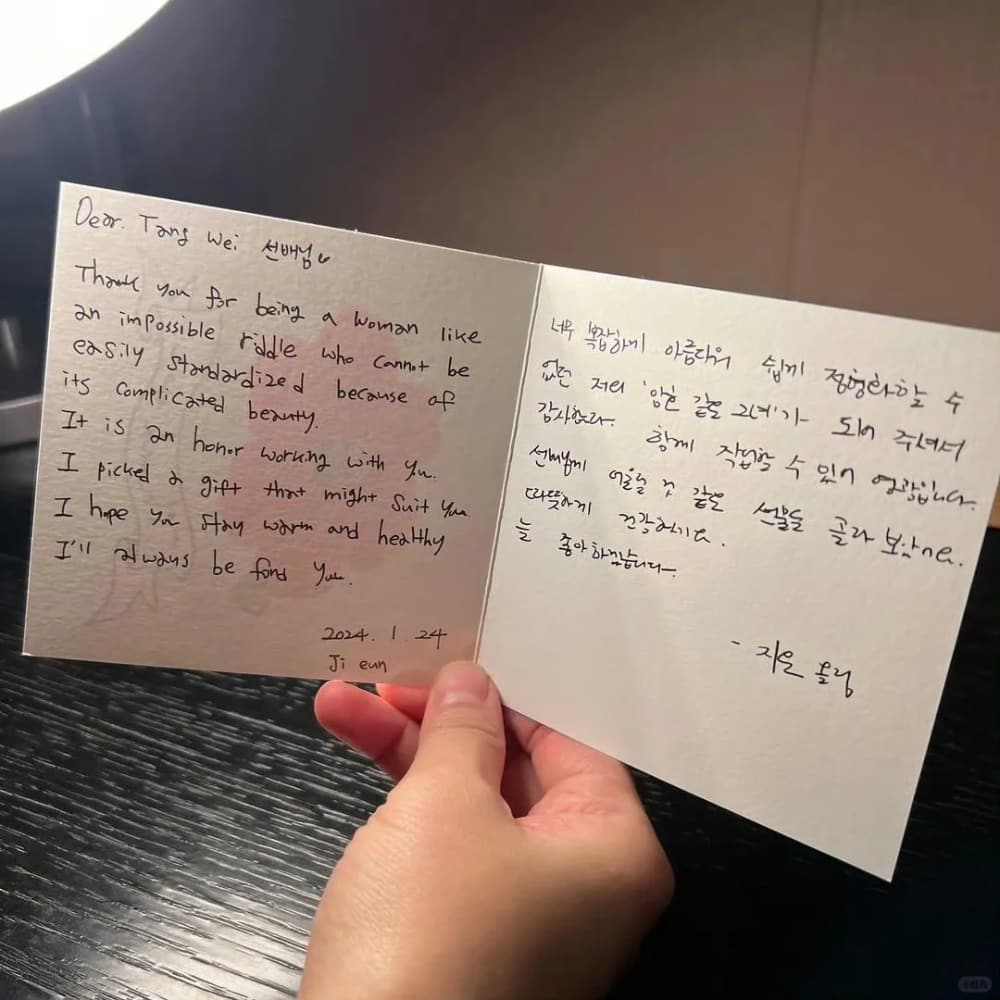 Dear. Tang Wei 선배님
Thank you for being a woman like
an impossible riddle who cannot be
easily standardized because of
its complicated beauty.
It is an honor working with you.
I picked a gift that might suit you.
I hope you stay warm and healthy
I'll always be fond you.
2024. 1. 24
Ji eun
너무 복잡하게 아름다워 쉽게 정형화할 수
없던 저의 '암호 같은 그녀'가 되어 주셔서
감사합니다. 함께 작업할 수 있어 영광입니다.
선배님께 어울릴 것 같은 선물을 골라 보았어요.
따뜻하게 건강하세요.
늘 좋아하겠습니다.
- 지은 올림